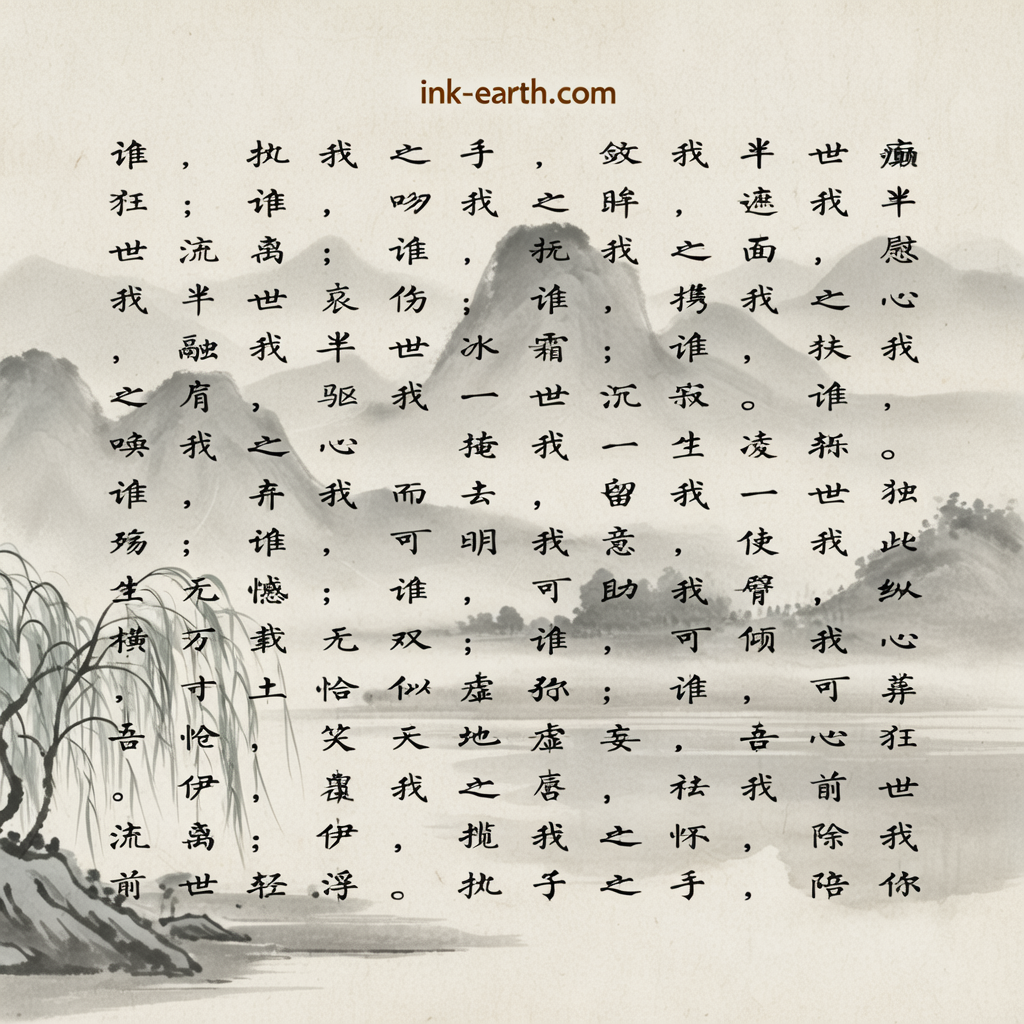 谁，执我之手，敛我半世癫
狂；谁，吻我之眸，遮我半
世流离；谁，抚我之面，慰
我半世哀伤；谁，携我之心
，融我半世冰霜；谁，扶我
之肩，驱我一世沉寂。谁，
唤我之心 掩我一生凌轹。
谁，弃我而去，留我一世独
殇；谁，可明我意，使我此
生无憾；谁，可助我臂，纵
横万载无双；谁，可倾我心
，寸土恰似虚弥；谁，可葬
吾怆，笑天地虚妄，吾心狂
。伊，我之唇，祛我前世
流离；伊，揽我之怀，除我
前世轻浮。执子之手，陪你